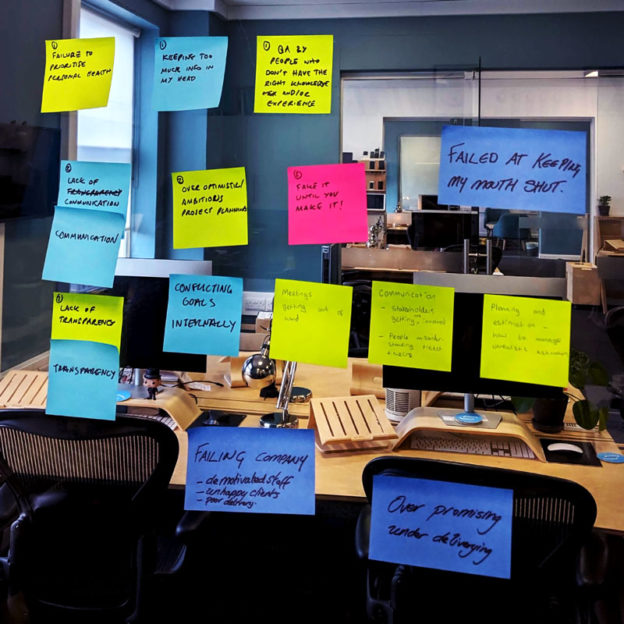 ① FAILURE TO
PRIORITISE
PERSONAL HEALTH
KEEPING TOO
MUCH INFO IN
MY HEAD
QA BY
PEOPLE WHO
DON'T HAVE THE
RIGHT KNOWLEDGE
AND/OR
EXPERIENCE
FAILED AT KEEPING
MY MOUTH SHUT.
LACK OF
TRANSPARENCY
COMMUNICATION
OVER OPTIMISTIC/
AMBITIOUS
PROJECT PLANNING
FAKE IT
UNTIL YOU
MAKE IT!
COMMUNICATION
LACK OF
TRANSPARENCY
CONFLICTING
GOALS
INTERNALLY
Meetings
getting out of
hand
Communication
- Stakeholders
getting involved
- People
Planning and
estimation -
how to manage
unrealistic
TRANSPARENCY
FAILING COMPANY
- demotivated staff
- unhappy clients
- poor delivery.
Over promising
under delivering